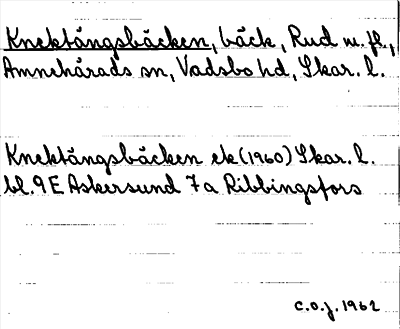 Knektängsbäcken, bäck, Rud m. fl.,
Amnehärads sn, Vadsbo hd, Skar. l.
Knektängsbäcken ek (1960) Skar. l.
bl. 9 E Askersund 7 a Ribbingsfors
C.O.J. 1962